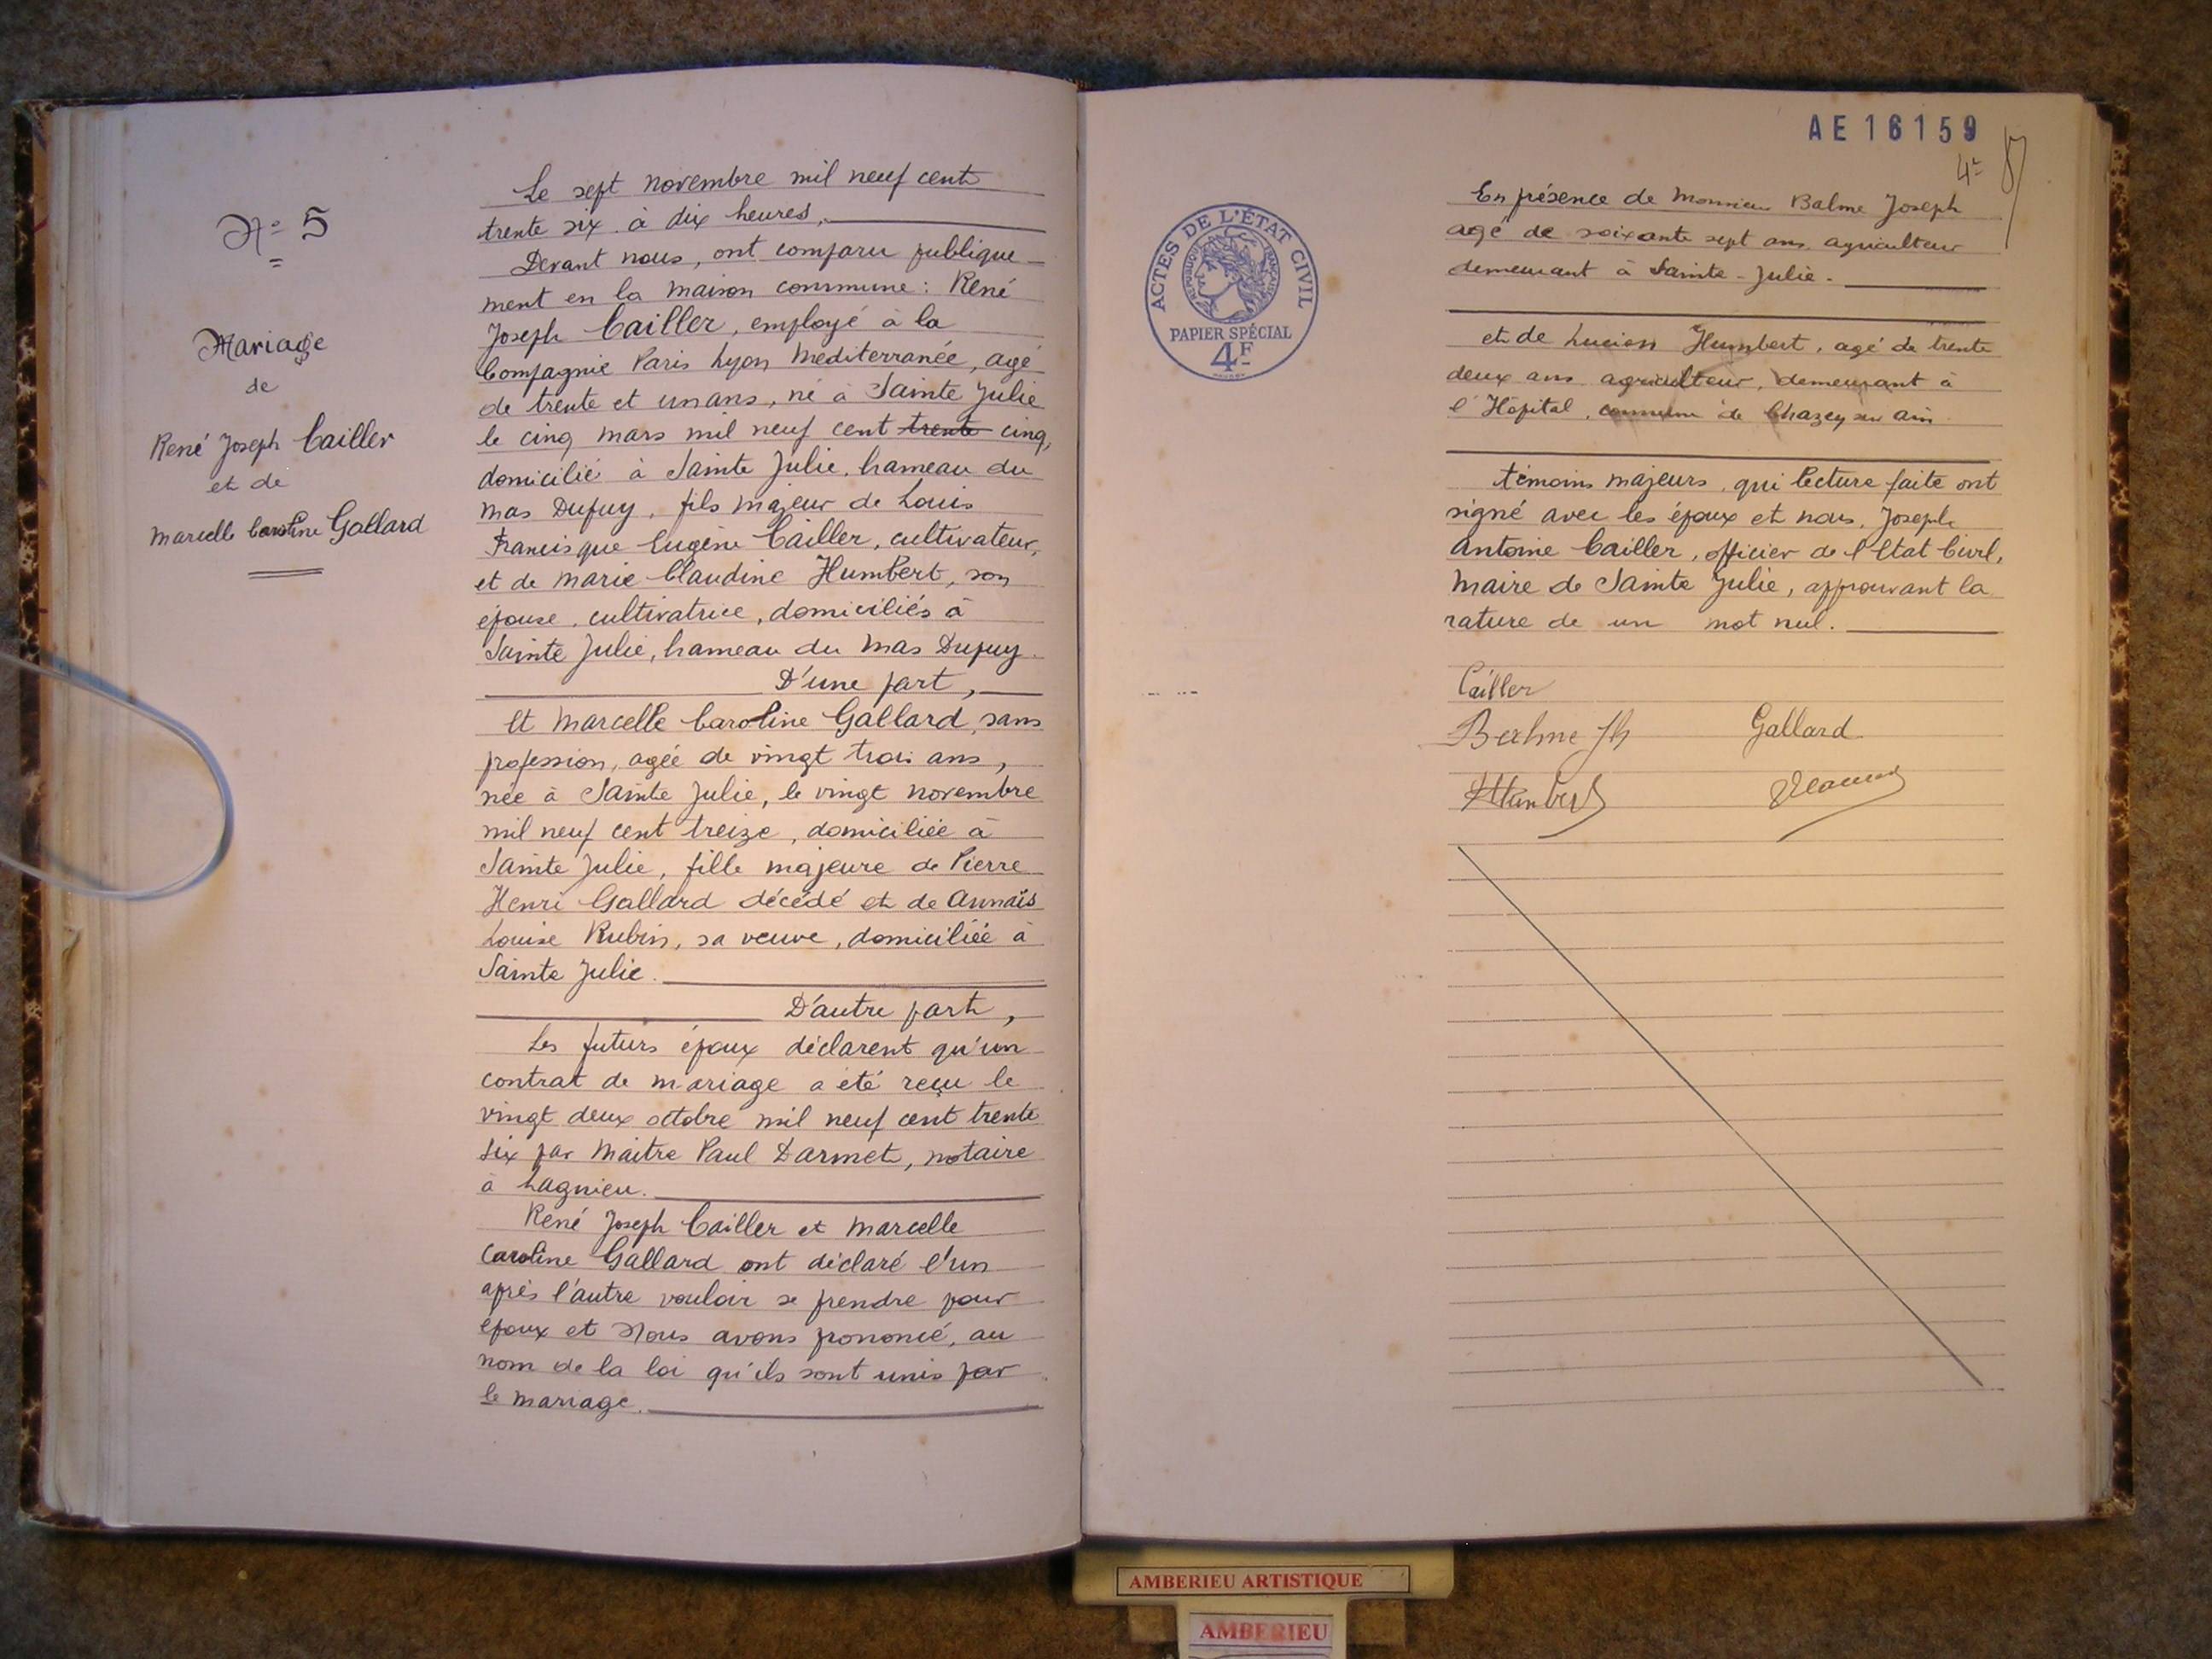 N° 5
Mariage
de
René Joseph Cailler
et de
Marcelle Caroline Gallard
Le sept novembre mil neuf cent
trente six à dix heures,
Devant nous, ont comparu publique-
ment en la maison commune : René
Joseph Cailler, employé à la
Compagnie Paris Lyon Méditerranée, agé
de trente et un ans, né à Sainte Julie
le cinq mars mil neuf cent trente cinq,
domicilié à Sainte Julie, hameau du
mas Dupuy, fils majeur de Louis
Francisque Eugène Cailler, cultivateur,
et de Marie Claudine Humbert, son
épouse, cultivatrice, domiciliés à
Sainte Julie, hameau du Mas Dupuy.
D'une part,
Et Marcelle Caroline Gallard, sans
profession, agée de vingt trois ans,
née à Sainte Julie, le vingt novembre
mil neuf cent treize, domiciliée à
Sainte Julie, fille majeure de Pierre
Henri Gallard décédé et de Annaïs
Louise Rubin, sa veuve, domiciliée à
Sainte Julie.
D'autre part,
Les futurs époux déclarent qu'un
contrat de mariage a été reçu le
vingt deux octobre mil neuf cent trente
six par Maitre Paul Darmet, notaire
à Lagnieu.
René Joseph Cailler et Marcelle
Caroline Gallard ont déclaré l'un
après l'autre vouloir se prendre pour
époux et Nous avons prononcé, au
nom de la loi qu'ils sont unis par
le mariage.
AE 16159
4e
ACTES DE L'ÉTAT CIVIL
RÉPUBLIQUE FRANÇAISE
PAPIER SPÉCIAL
4F
En présence de Monsieur Balme Joseph
agé de soixante sept ans agriculteur
demeurant à Sainte-Julie.
et de Lucien Humbert, agé de trente
deux ans agriculteur, demeurant à
l'Hôpital, commune de Chazey sur Ain
témoins majeurs, qui lecture faite ont
signé avec les époux et nous, Joseph
Antoine Cailler, officier de l'Etat Civil,
Maire de Sainte Julie, approuvant la
rature de un mot nul.
Cailler
Balme Jh Gallard
Humbert
AMBERIEU ARTISTIQUE
AMBERIEU